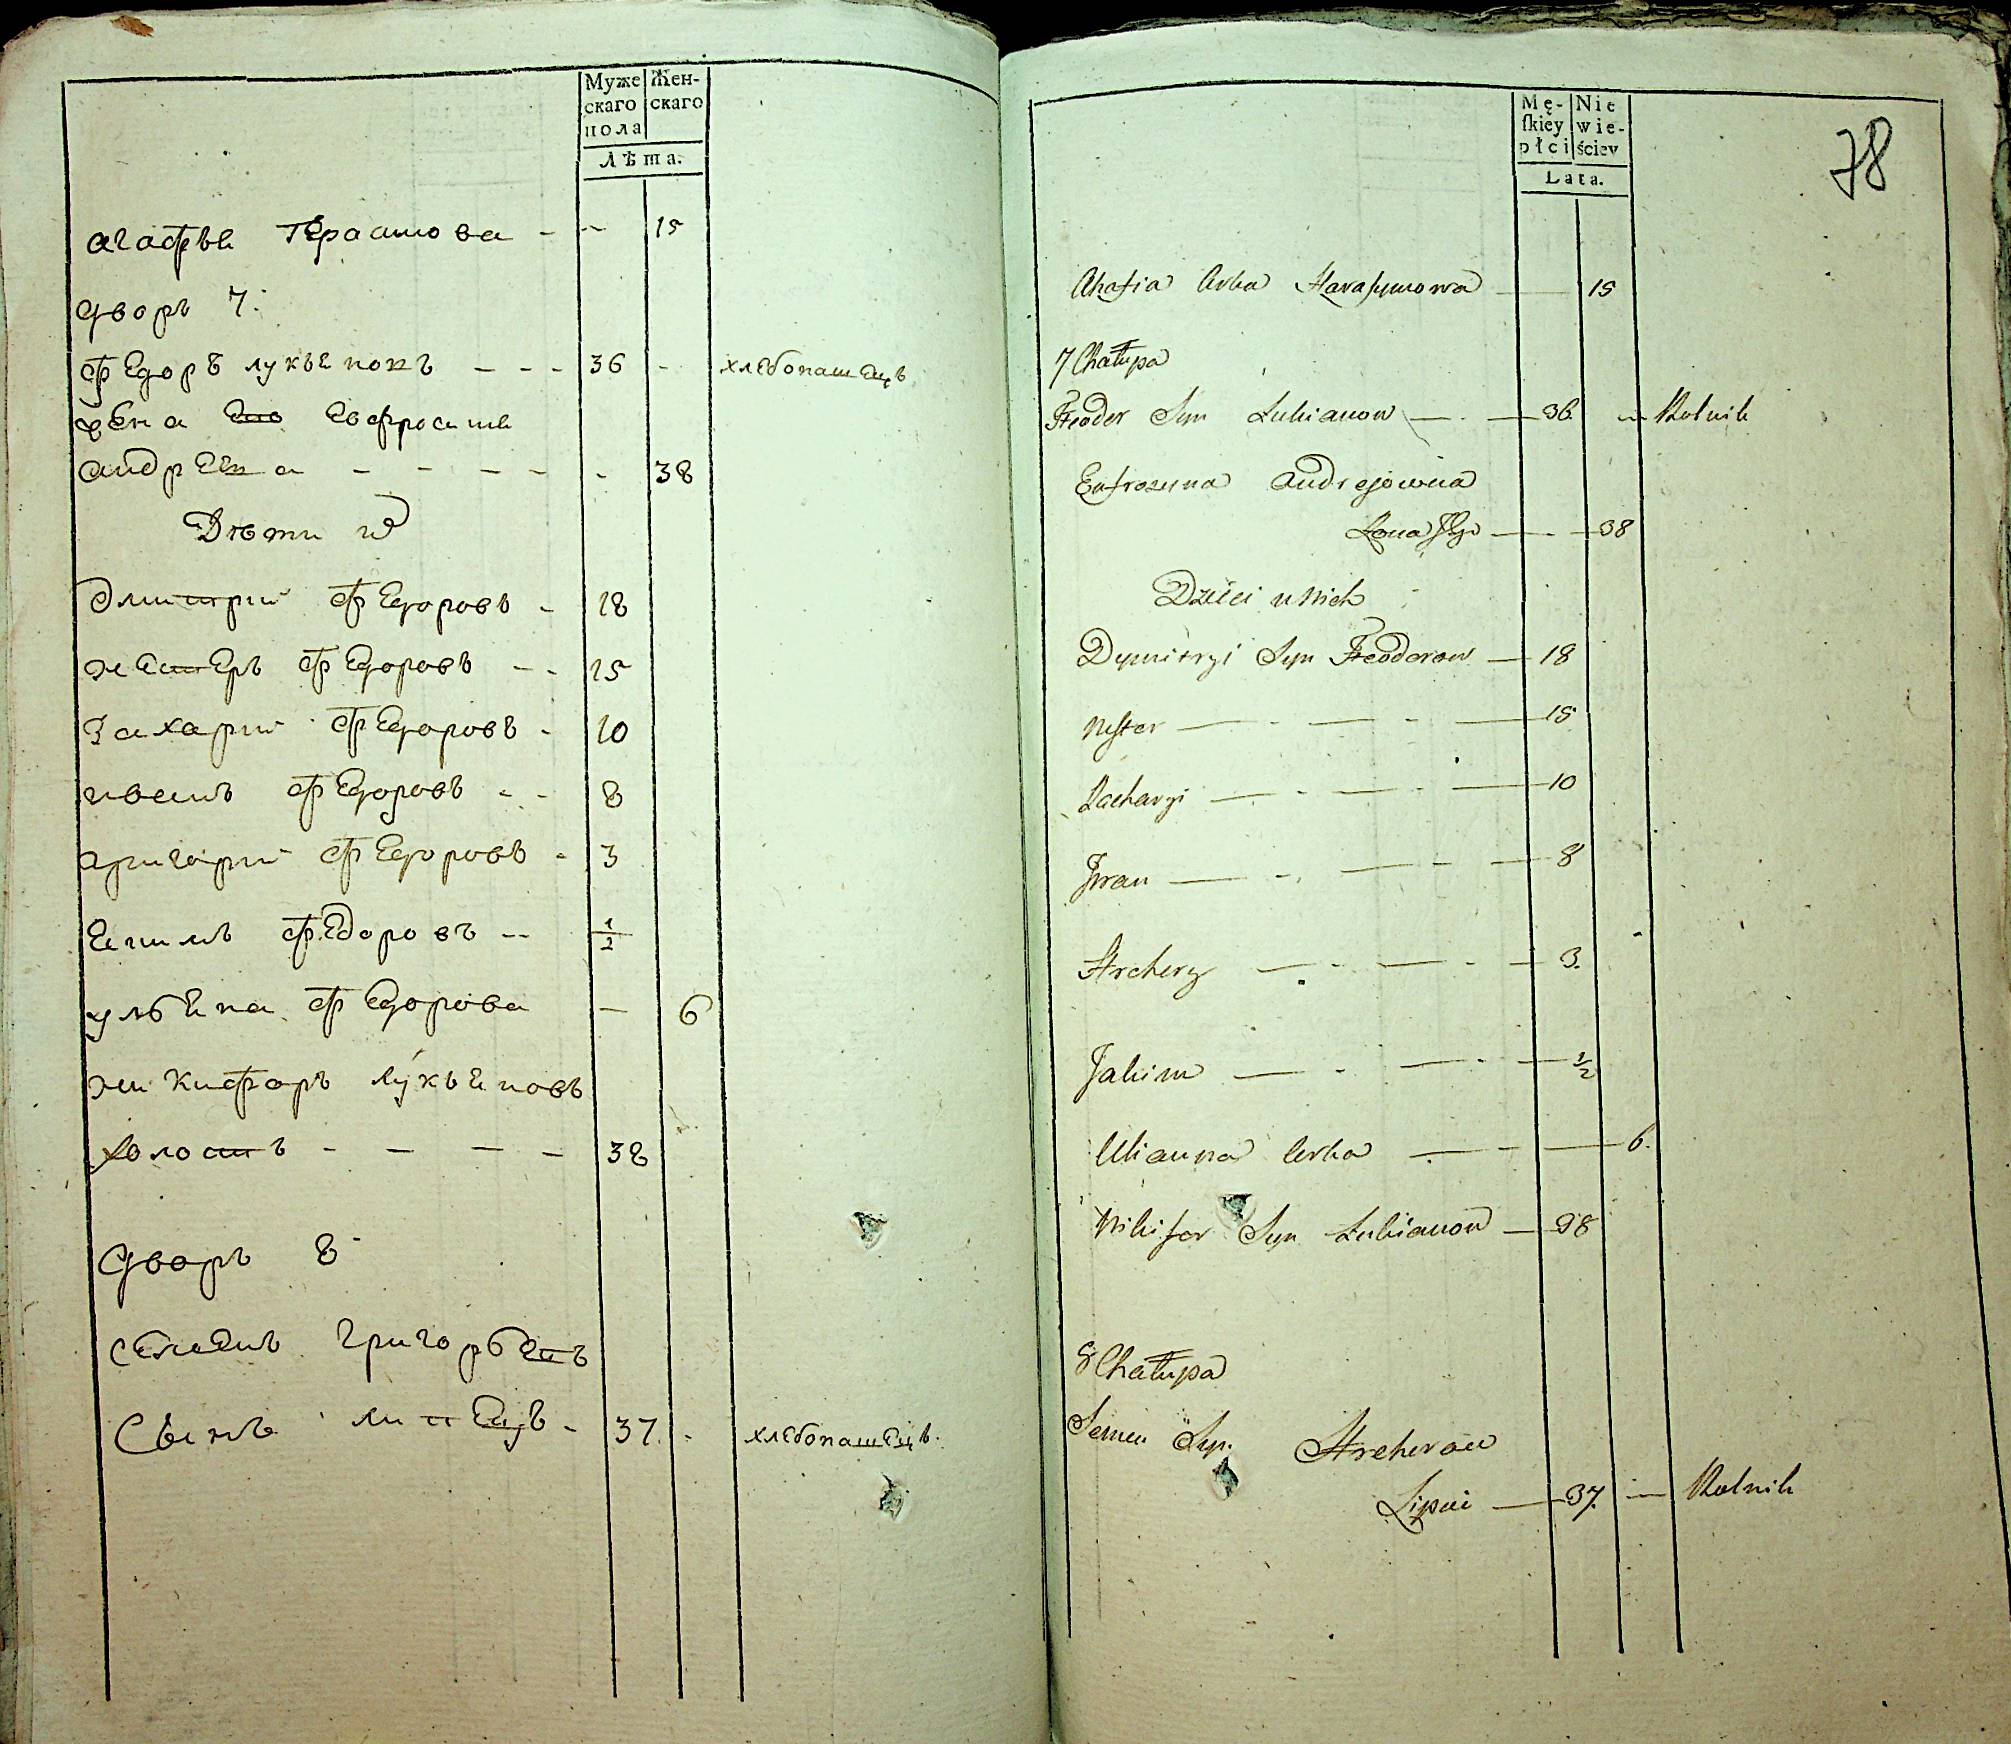 Муже Жен-
скаго скаго
пола
Лѣта.
агафья Герасимова - - 15
дворъ 7.
федоръ лукьяновъ - - - 36 - хлебопашецъ
жена его Евфросинья
андреева - - - - - - 38
Дѣти их
Дмитрий федоровъ - 18
нестеръ федоровъ - - 15
Захарий федоровъ - 10
иванъ федоровъ - - 8
григорий федоровъ - 3
Еким федоровъ - - 1/2
ульяна федорова — 6
никифоръ лукьяновъ
холостъ - - - - 38
дворъ 8
семенъ григорьевъ
сынъ - 37. - хлебопашецъ.
Mę- Nie
ſkiey wie-
płci ściey
Lata.
78
Ahafia Corka Harasymowa — 15
7 Chałupa
Fteodor Syn Lukianow — . — 36 — Rolnik
Eufrozyna Andrejowna
Żona Jego — . — 38
Dzieci u Nich
Dymitryi Syn Fteodorow — 18
Nester — - — - — 15
Zacharyi — - — - — 10
Iwan — - . — - — 8
Hrehery — . - — - — 3.
Jakim — - — - — 1/2
Ulianna Corka — . - — 6.
Nikifor Syn Lukianow — 38
8 Chałupa
Semen Syn Hreherow
— 37. — Rolnik